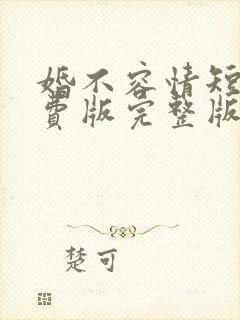 婚不容情短
费版完整版
楚可